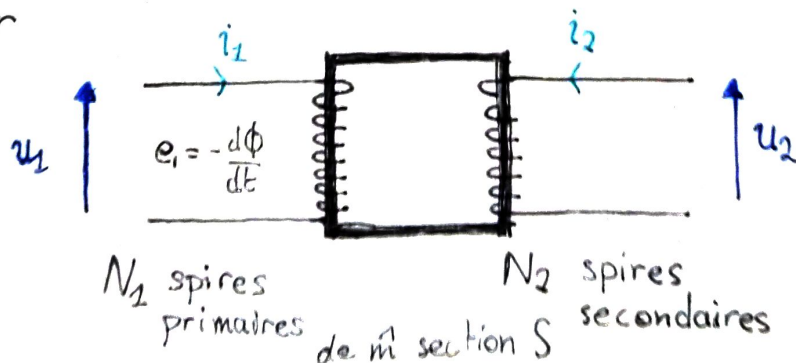 i₁
i₂
u₁
e₁ = -dΦ/dt
u₂
N₁ spires
primaires
N₂ spires
secondaires
de m̂ section S